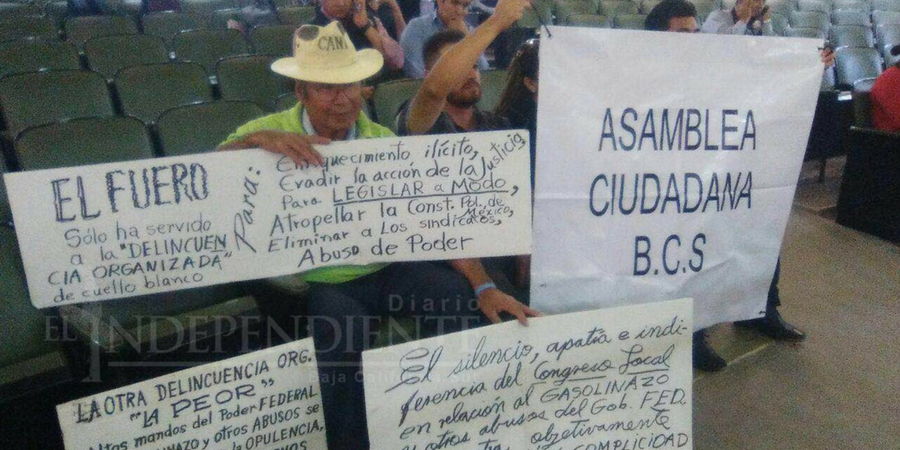 CANI
EL FUERO
Sólo ha servido
a la "DELINCUEN
CIA ORGANIZADA"
de cuello blanco
Para:
Enriquecimiento ilícito,
Evadir la acción de la Justicia,
Para LEGISLAR a MODO,
Atropellar la Const. Pol. de México,
Eliminar a Los sindicatos,
Abuso de Poder
ASAMBLEA
CIUDADANA
B.C.S
Diario
EL INDEPENDIENTE
LA OTRA DELINCUENCIA ORG.
"LA PEOR"
Altos mandos del Poder FEDERAL
y otros ABUSOS se
OPULENCIA,
El silencio, apatía e indi-
ferencia del Congreso Local
en relación al GASOLINAZO
y otros abusos del Gob. FED.
objetivamente
COMPLICIDAD